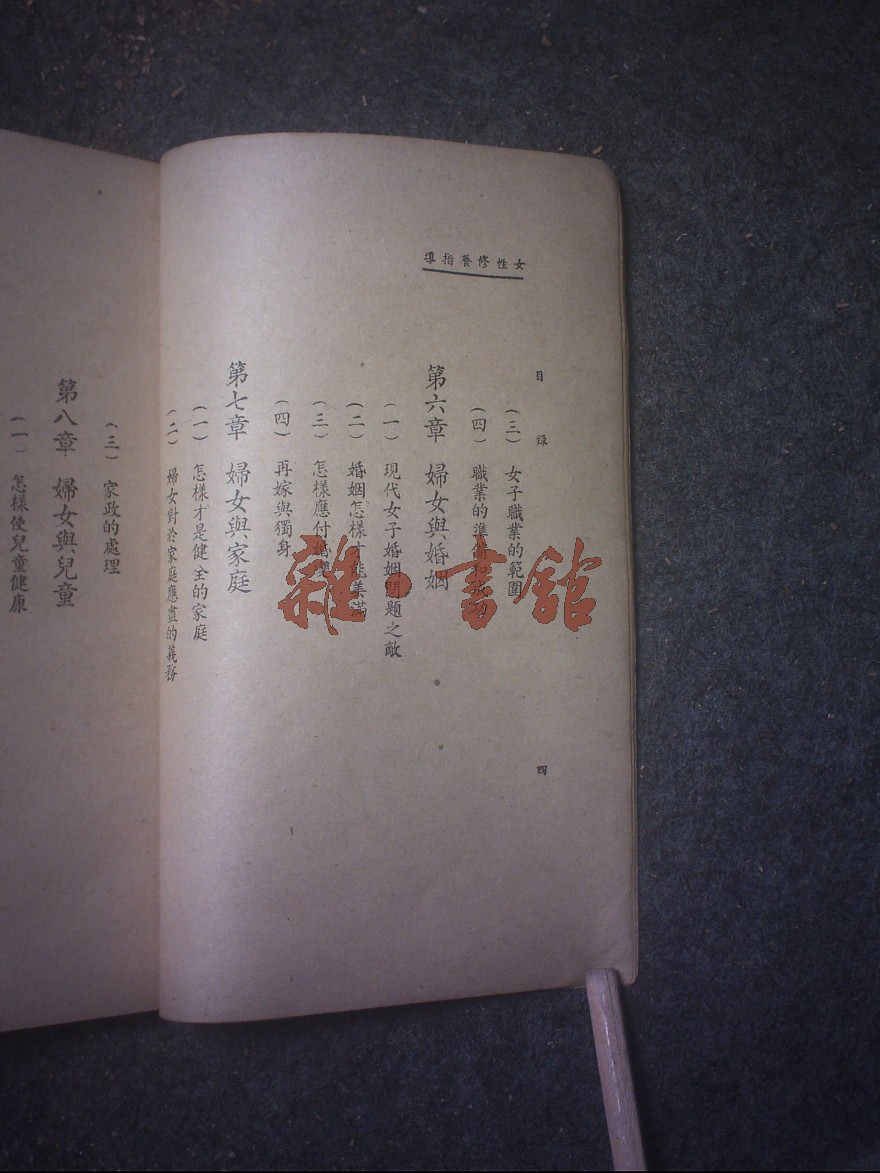 女性修養指導
目錄
(三) 女子職業的範圍
(四) 職業的準備和
第六章 婦女與婚姻
(一) 現代女子婚姻問題之敵
(二) 婚姻怎樣才能美滿
(三) 怎樣應付婚變
(四) 再嫁與獨身
第七章 婦女與家庭
(一) 怎樣才是健全的家庭
(二) 婦女對於家庭應盡的義務
四
(三) 家政的處理
第八章 婦女與兒童
(一) 怎樣使兒童健康
雜·書館